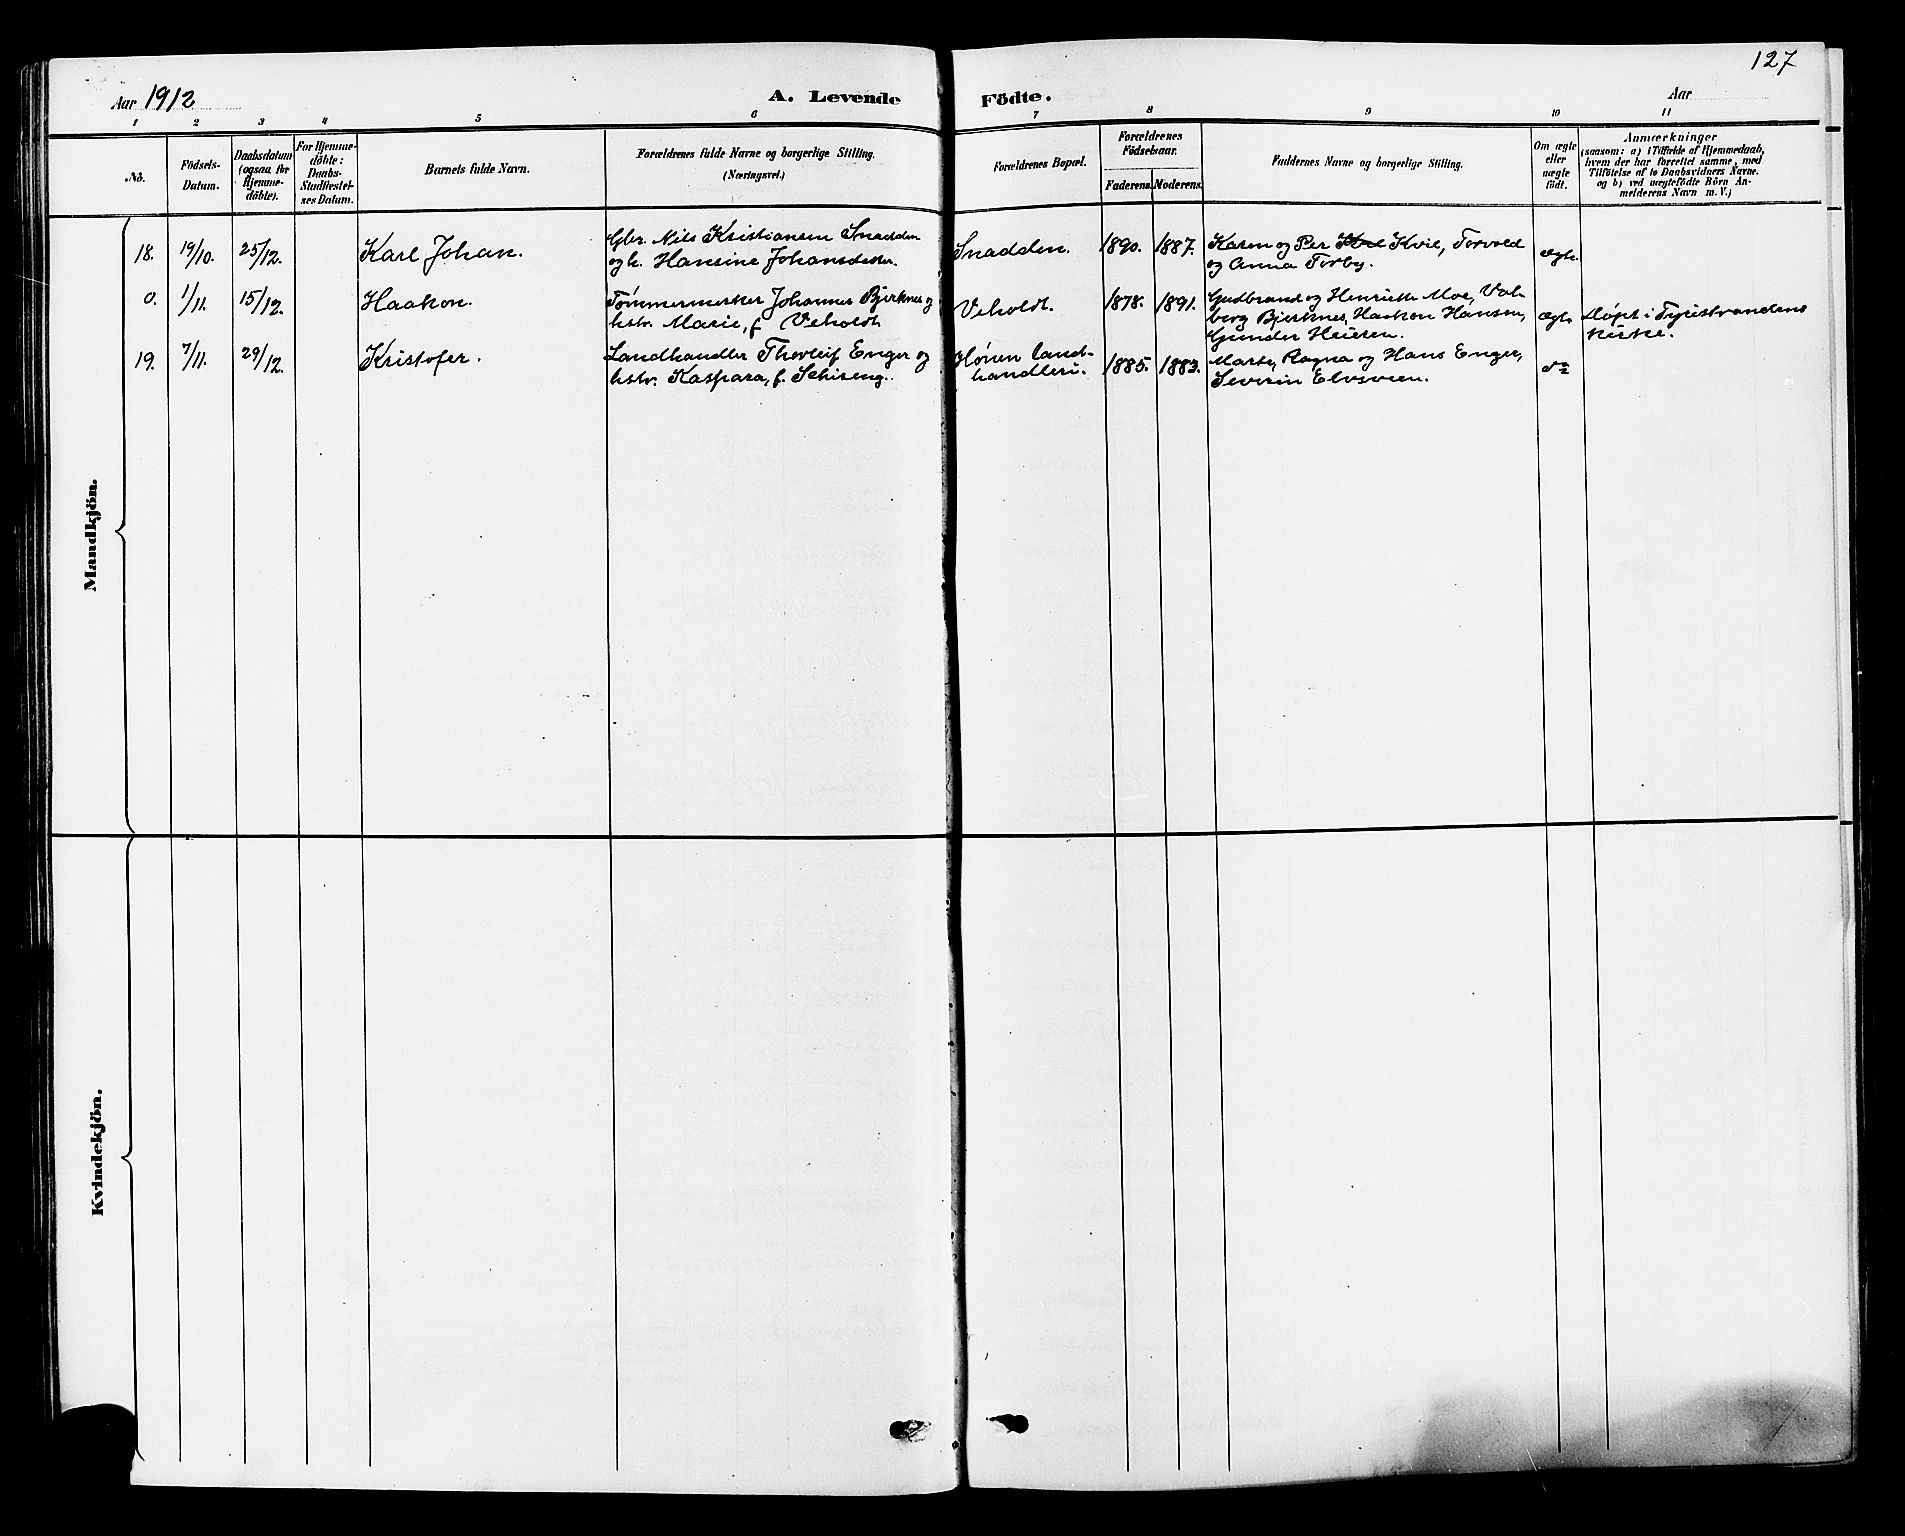 127
Aar 1912
A. Levende Födte.
Aar
1 2 3 4 5 6 7 8 9 10 11
No.
Födsels-
Datum.
Daabsdatum
(ogsaa for
Hjemme-
döbte).
For Hjemme-
döbte:
Daabs-
Stadfæstel-
ses Datum.
Barnets fulde Navn.
Forældrenes fulde Navne og borgerlige Stilling.
(Næringsvei.)
Forældrenes Bopæl.
Forældrenes
Födselsaar.
Faderens. Moderens.
Faddernes Navne og borgerlige Stilling.
Om ægte
eller
uægte
födt.
Anmærkninger
(saasom: a) i Tilfælde af Hjemmedaab,
hvem der har forrettet samme, med
Tilföielse af to Daabsvidners Navne.
og b) ved uægtefödte Börn An-
melderens Navn m. V.)
Mandkjön.
18. 19/10. 25/12. Karl Johan.
Gbr. Nils Kristiansen Snadden
og h. Hansine Johansdatter.
Snadden. 1890. 1887.
Karen og Per Kvil, Torvald
og Anna Torby.
ægte.
0. 1/11. 15/12. Haakon.
Tømmermerker Johannes Bjerknes og
hstr. Marie, f. Veholdt
Veholdt. 1878. 1891.
Gudbrand og Henriette Moe, Val-
berg Bjerknes, Haakon Hansen,
Gunder Heieren.
ægte
Døpt i Tyristrandens
kirke.
19. 7/11. 29/12. Kristofer.
Landhandler Thorleif Enger og
hstr. Kaspara, f. Schiseng.
Hønen land-
handleri. 1885. 1883.
Marte, Ragna og Hans Enger,
Severin Elvsveen.
do
Kvindekjön.